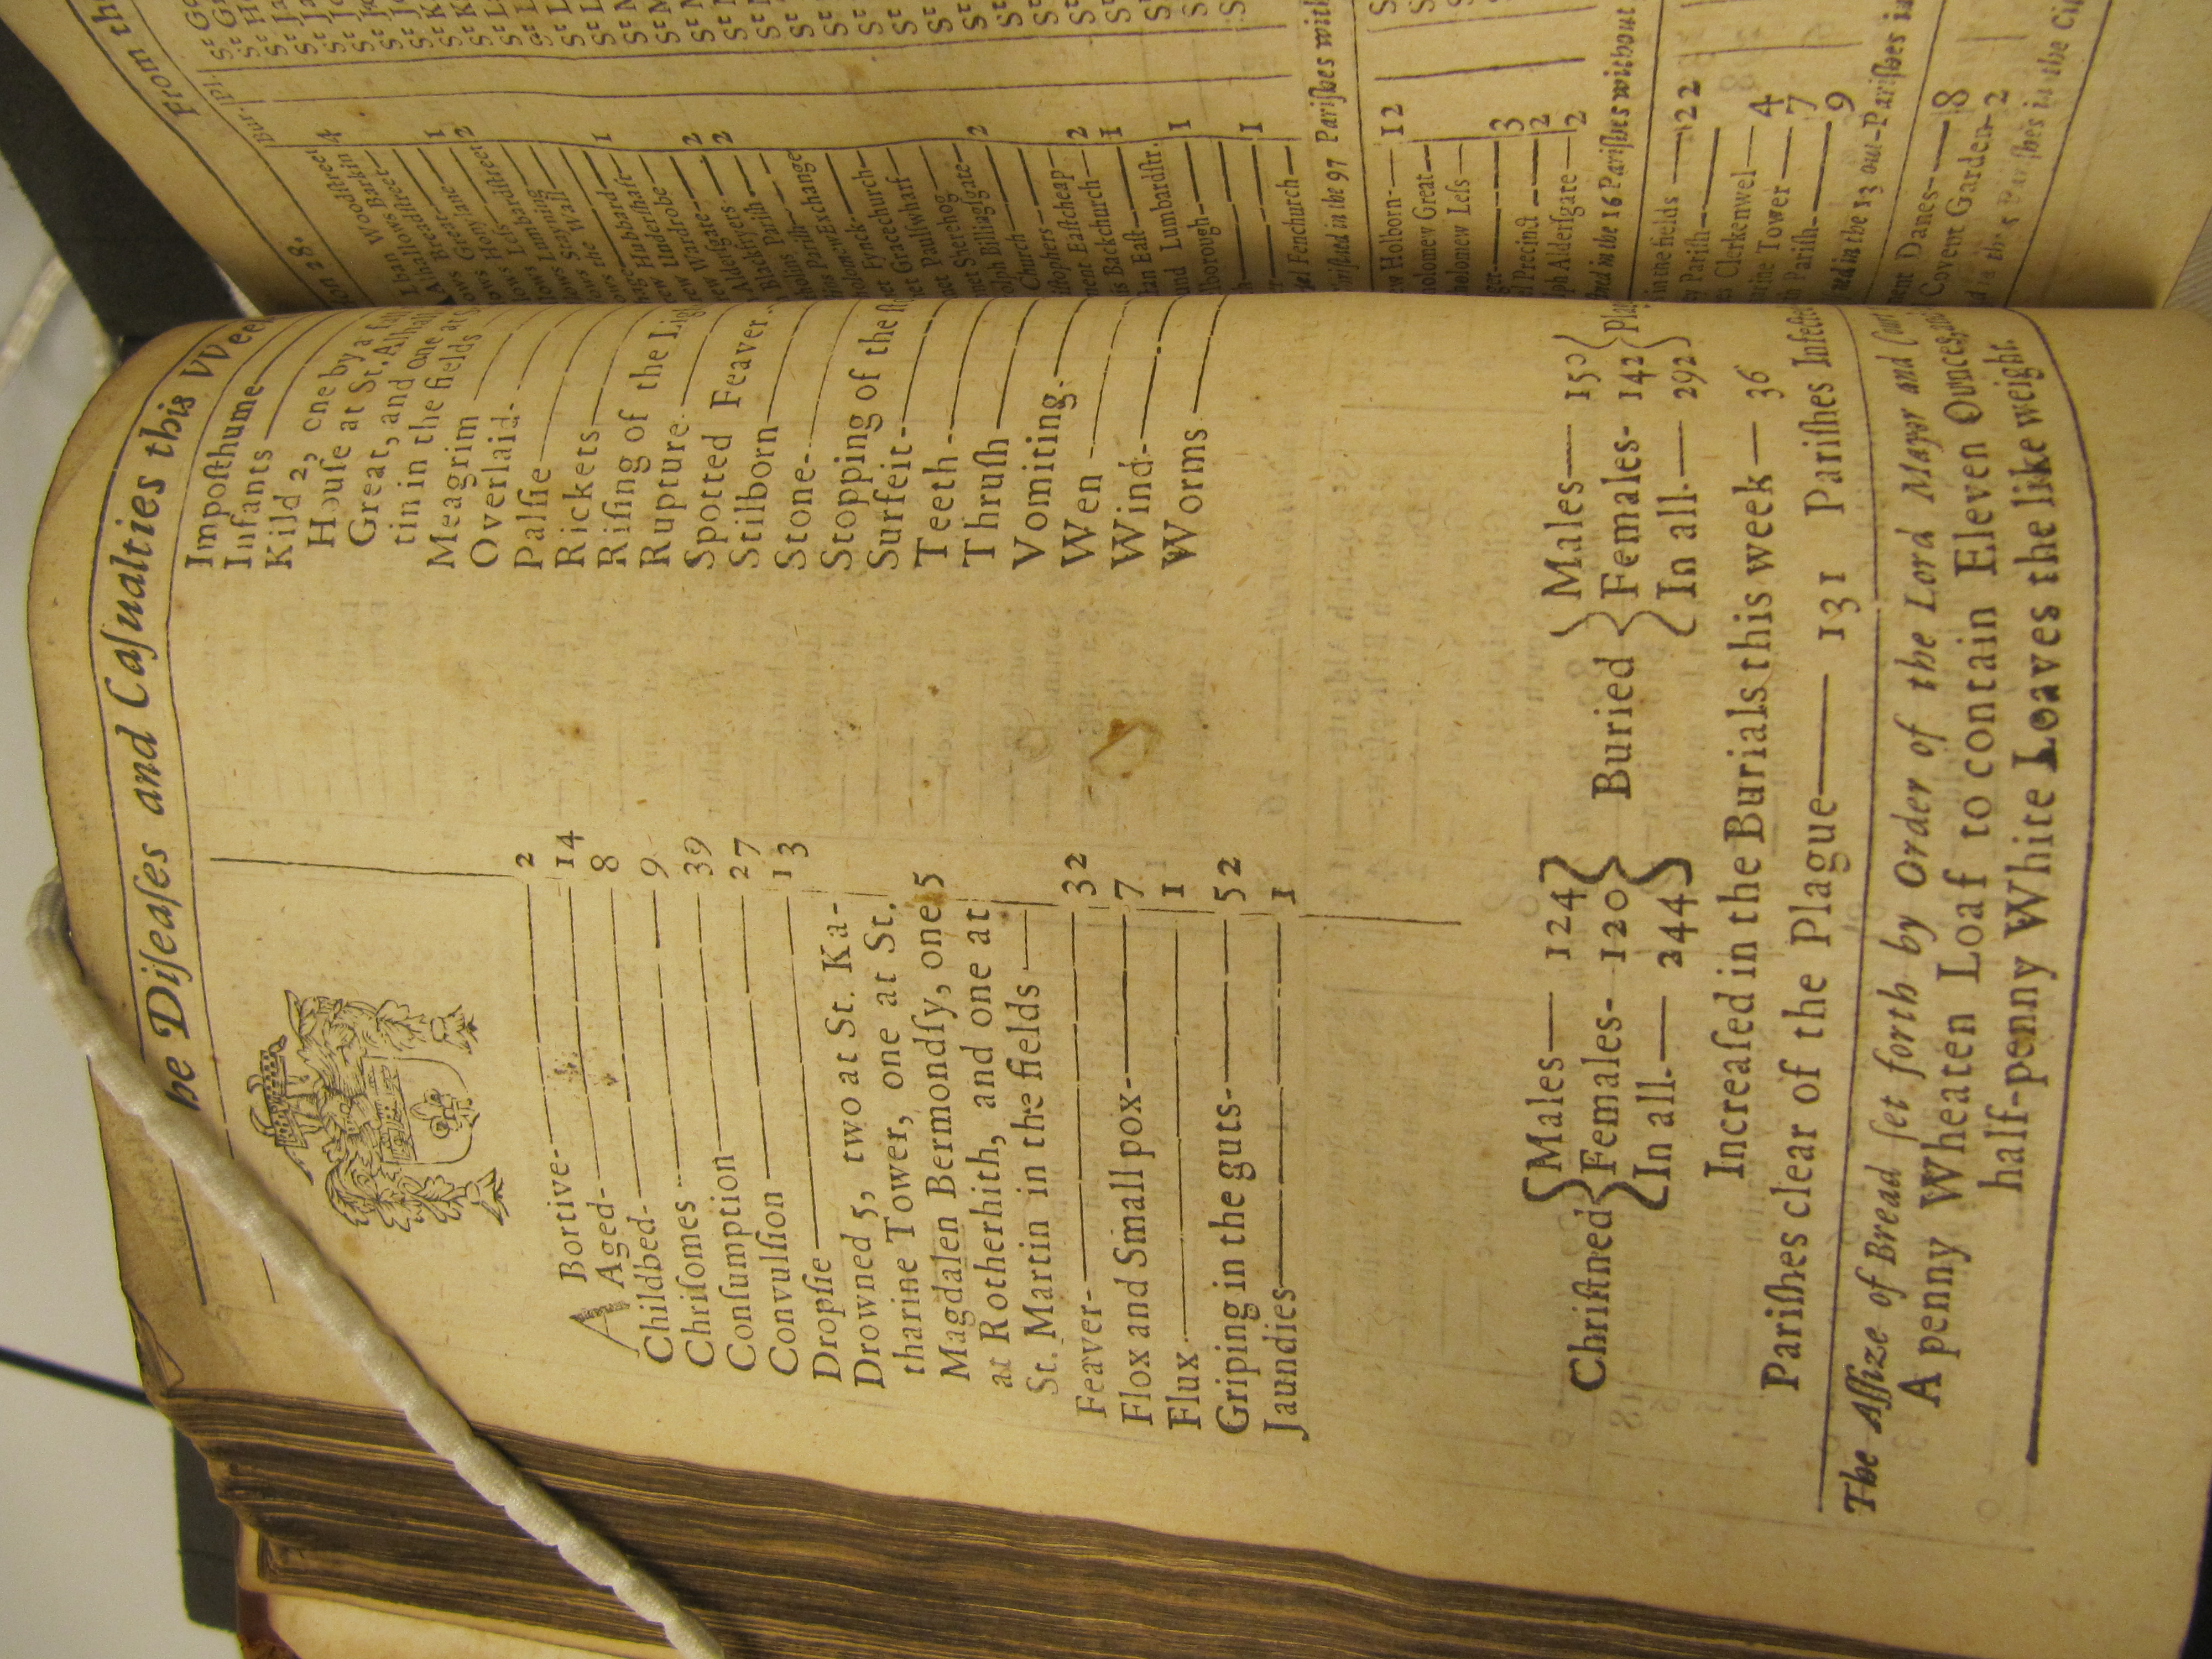 he Diſeaſes and Caſualties this VVee
A Bortive 2
Aged 14
Childbed 8
Chriſomes 9
Conſumption 39
Convulſion 27
Dropſie 13
Drowned 5, two at St. Ka-
tharine Tower, one at St.
Magdalen Bermondſy, one 5
at Rotherhith, and one at
St. Martin in the fields
Feaver 32
Flox and Small pox 7
Flux 1
Griping in the guts 52
Jaundies 1
Impoſthume
Infants
Kild 2, one by a
Houſe at St. Alhall
Great, and one a
tin in the fields
Meagrim
Overlaid
Palſie
Rickets
Riſing of the Lig
Rupture
Spotted Feaver
Stilborn
Stone
Stopping of the
Surfeit
Teeth
Thruſh
Vomiting
Wen
Wind
Worms
Chriſtned Males 124
Females 120
In all 244
Buried Males 150
Females 142
In all 292
Pla
Increaſed in the Burials this week 36
Pariſhes clear of the Plague 131 Pariſhes Infecte
The Aſſize of Bread ſet forth by Order of the Lord Mayor and Court
A penny Wheaten Loaf to contain Eleven Ounces, and
half-penny White Loaves the like weight.
From th
28.
Bur.
Woodſtreet 4
Barkin
1
2
Hubbard 1
Underſhaft
Wardrobe 2
2
Blackfryers
Pariſh
Exchange
Fynck
Gracechurch
Paulſwharf
Sherehog
Billingſgate 2
Church
Eaſtcheap 2
Backchurch 1
Eaſt
Lumbardſtr. 1
1
Fenchurch
in the 97 Pariſhes with
Holborn 12
Great
Leſs
3
Precinct 2
Alderſgate 2
in the 16 Pariſhes without
in the fields 22
Pariſh
Clerkenwel 4
Tower 7
Pariſh 9
in the 13 out-Pariſhes in
Danes 8
Covent Garden 2
Pariſhes in the Ci